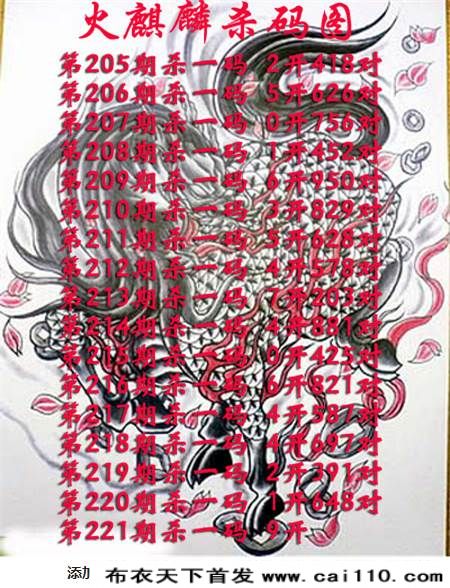 火麒麟杀码图
第205期杀一码 2开418对
第206期杀一码 5开626对
第207期杀一码 0开756对
第208期杀一码 1开452对
第209期杀一码 6开950对
第210期杀一码 3开829对
第211期杀一码 5开628对
第212期杀一码 4开578对
第213期杀一码 7开203对
第214期杀一码 4开881对
第215期杀一码 0开425对
第216期杀一码 6开821对
第217期杀一码 4开587对
第218期杀一码 4开697对
第219期杀一码 2开391对
第220期杀一码 1开648对
第221期杀一码 9开
布衣天下首发 www.cai110.com